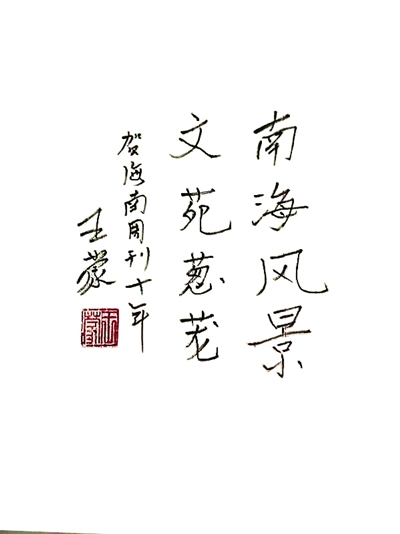 南海风景
文苑葱茏
贺海南周刊十年
王蒙
王蒙